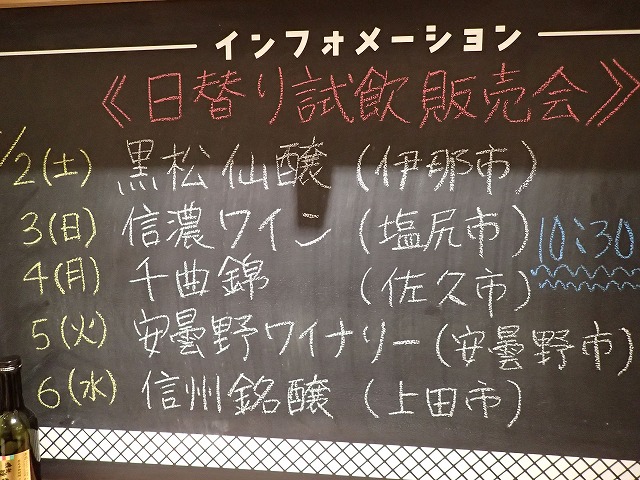 インフォメーション
《日替り試飲販売会》
/2(土) 黒松仙醸 (伊那市)
3(日) 信濃ワイン (塩尻市) 10:30
4(月) 千曲錦 (佐久市)
5(火) 安曇野ワイナリー (安曇野市)
6(水) 信州銘醸 (上田市)